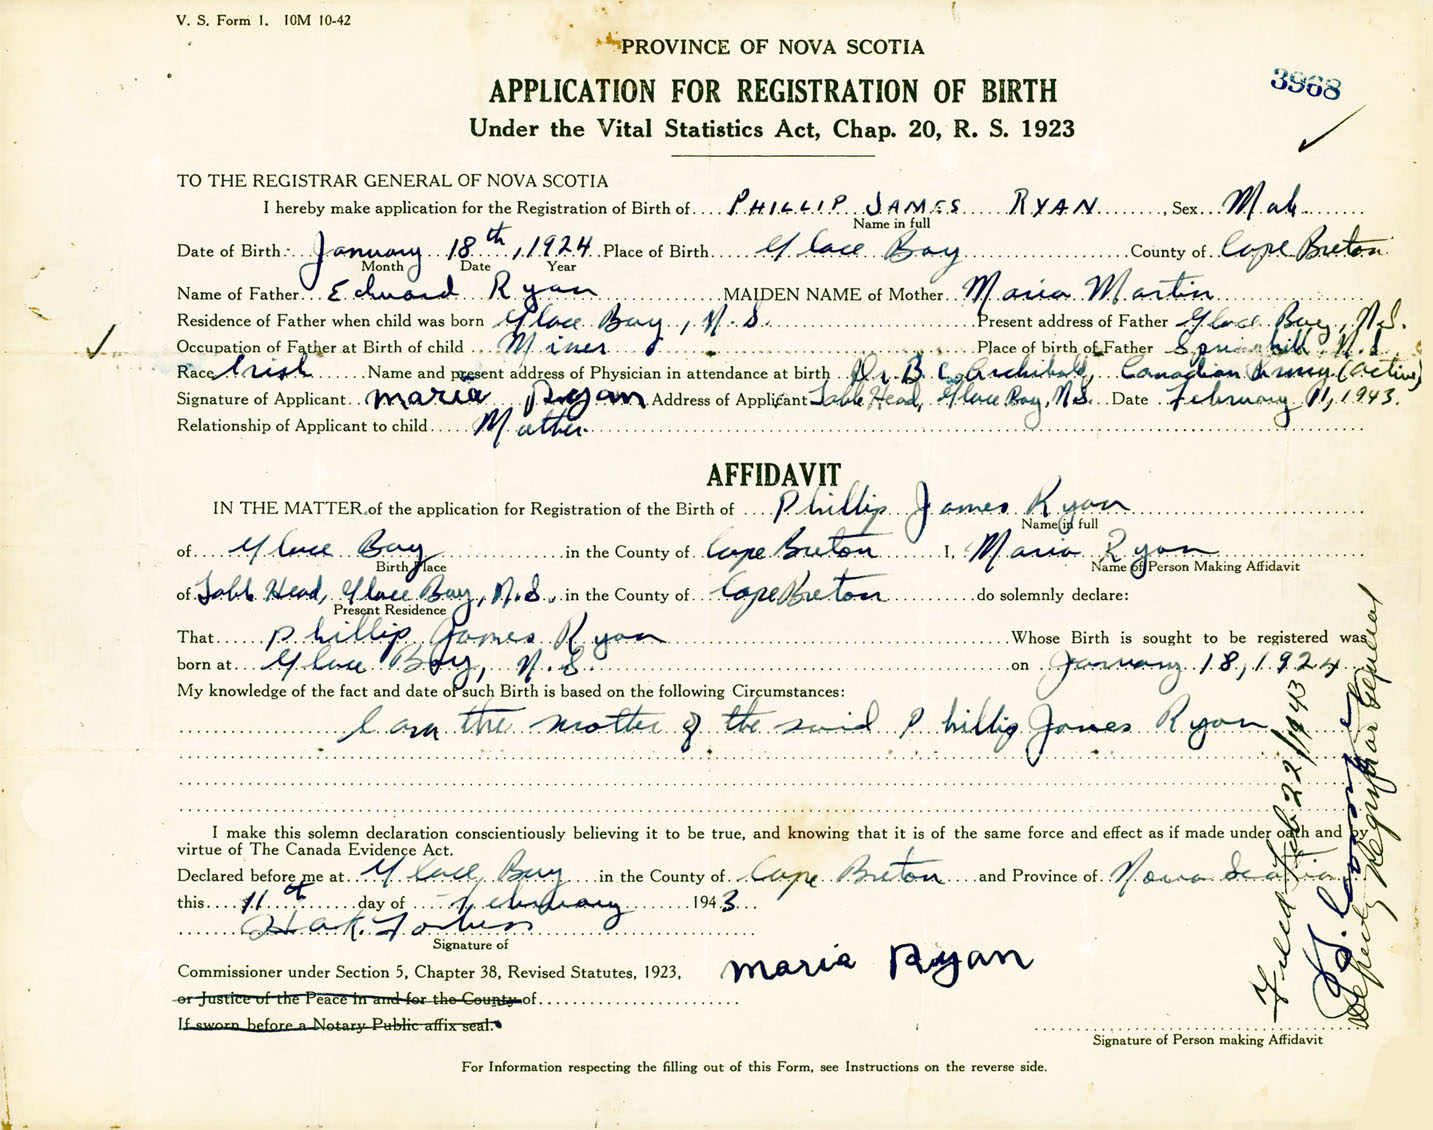 V. S. Form 1. 10M 10-42
PROVINCE OF NOVA SCOTIA
3968
APPLICATION FOR REGISTRATION OF BIRTH
Under the Vital Statistics Act, Chap. 20, R. S. 1923
TO THE REGISTRAR GENERAL OF NOVA SCOTIA
I hereby make application for the Registration of Birth of PHILLIP JAMES RYAN, Sex Male
Name in full
Date of Birth January 18th, 1924 Place of Birth Glace Bay County of Cape Breton
Month Date Year
Name of Father Edward Ryan MAIDEN NAME of Mother Maria Martin
Residence of Father when child was born Glace Bay, N.S. Present address of Father Glace Bay, N.S.
Occupation of Father at Birth of child Miner Place of birth of Father Springhill N.S.
Race Irish Name and present address of Physician in attendance at birth Dr. B. C. Archibald, Canadian Army (active)
Signature of Applicant Maria Ryan Address of Applicant Table Head, Glace Bay, N.S. Date February 11, 1943.
Relationship of Applicant to child Mother
AFFIDAVIT
IN THE MATTER of the application for Registration of the Birth of Phillip James Ryan
Name in full
of Glace Bay in the County of Cape Breton I, Maria Ryan
Birth Place Name of Person Making Affidavit
of Table Head, Glace Bay, N.S. in the County of Cape Breton do solemnly declare:
Present Residence
That Phillip James Ryan Whose Birth is sought to be registered was
born at Glace Bay, N.S. on January 18, 1924
My knowledge of the fact and date of such Birth is based on the following Circumstances:
I am the mother of the said Phillip James Ryan
I make this solemn declaration conscientiously believing it to be true, and knowing that it is of the same force and effect as if made under oath and by
virtue of The Canada Evidence Act.
Declared before me at Glace Bay in the County of Cape Breton and Province of Nova Scotia
this 11th day of February 1943
Forbes
Signature of
Commissioner under Section 5, Chapter 38, Revised Statutes, 1923,
Maria Ryan
or Justice of the Peace in and for the County of
If sworn before a Notary Public affix seal.
Signature of Person making Affidavit
For Information respecting the filling out of this Form, see Instructions on the reverse side.
Filed Feb 22/1943
Deputy Registrar General